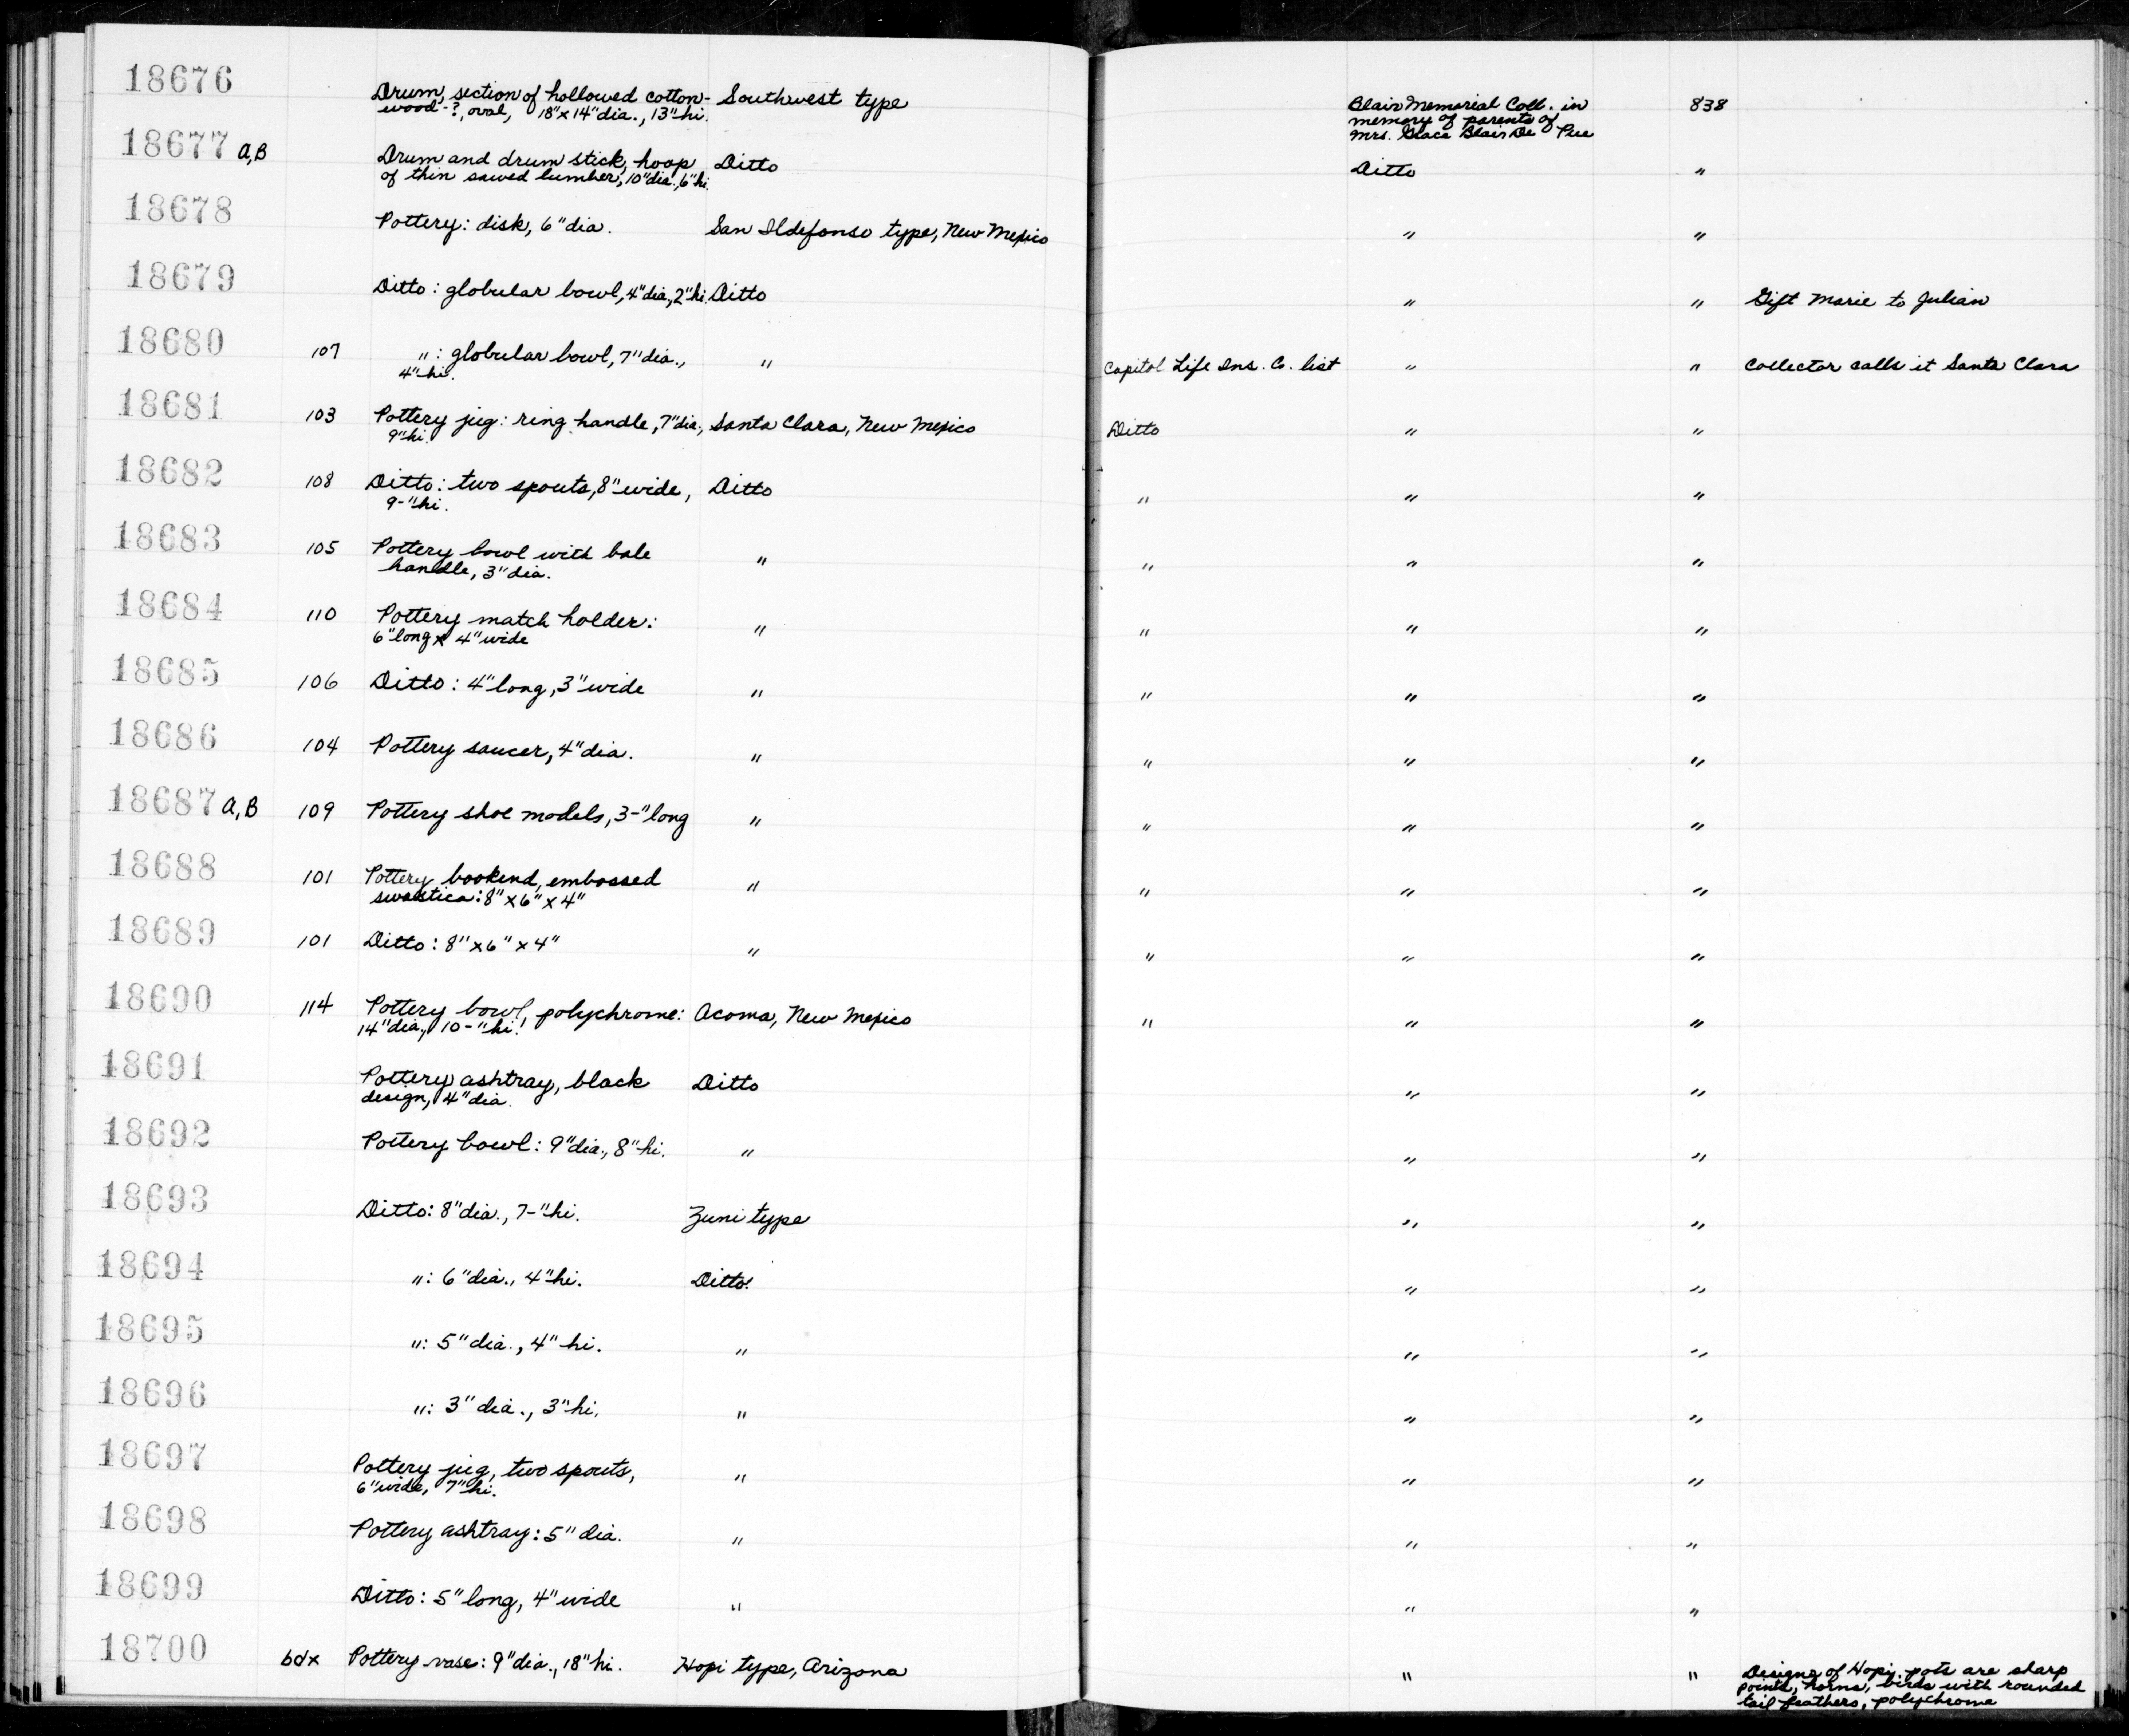 18676 Drum, section of hollowed cotton- Southwest type Blair Memorial Coll. in 838
wood-?, oval, 18"x14"dia., 13"hi. memory of parents of
Mrs. Grace Blair De Pue
18677 A,B Drum and drum stick, hoop Ditto Ditto "
of thin sawed lumber, 10"dia., 6"hi.
18678 Pottery: disk, 6"dia. San Ildefonso type, New Mexico " "
18679 Ditto: globular bowl, 4"dia., 2"hi. Ditto " " Gift Marie to Julian
18680 107 ": globular bowl, 7"dia., " Capitol Life Ins. Co. list " " Collector calls it Santa Clara
4"hi.
18681 103 Pottery jug: ring handle, 7"dia., Santa Clara, New Mexico Ditto " "
9"hi.
18682 108 Ditto: two spouts, 8"wide, Ditto " " "
9-"hi.
18683 105 Pottery bowl with bale " " " "
handle, 3"dia.
18684 110 Pottery match holder: " " " "
6"long x 4"wide
18685 106 Ditto: 4"long, 3"wide " " " "
18686 104 Pottery saucer, 4"dia. " " " "
18687 A,B 109 Pottery shoe models, 3-"long " " " "
18688 101 Pottery bookend, embossed " " " "
swastica: 8"x6"x4"
18689 101 Ditto: 8"x6"x4" " " " "
18690 114 Pottery bowl, polychrome: Acoma, New Mexico " " "
14"dia., 10-"hi.
18691 Pottery ashtray, black Ditto " "
design, 4"dia.
18692 Pottery bowl: 9"dia., 8"hi. " " "
18693 Ditto: 8"dia., 7-"hi. Zuni type " "
18694 ": 6"dia., 4"hi. Ditto " "
18695 ": 5"dia., 4"hi. " " "
18696 ": 3"dia., 3"hi. " " "
18697 Pottery jug, two spouts, " " "
6"wide, 7"hi.
18698 Pottery ashtray: 5"dia. " " "
18699 Ditto: 5"long, 4"wide " " "
18700 bdx Pottery vase: 9"dia., 18"hi. Hopi type, Arizona " " Designs of Hopi pots are sharp
points, horns, birds with rounded
tail feathers, polychrome